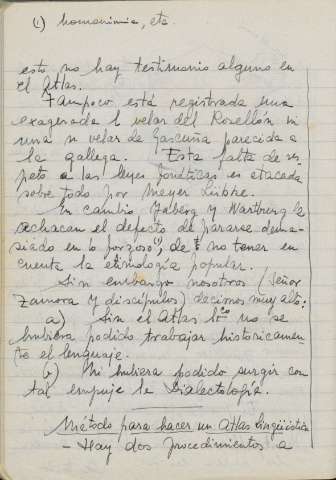 (1) homonimia, etc.
esto no hay testimonio alguno en
el Atlas.
Tampoco está registrada una
exagerada l velar del Rosellón ni
una n velar de Gascuña parecida a
la gallega. Esta falta de res-
peto a las leyes fonéticas es atacada
sobre todo por Meyer Lübke.
En cambio Jaberg y Wartburg le
achacan el defecto de pararse dema-
siado en lo forzoso(1), de no tener en
cuenta la etimología popular.
Sin embargo nosotros (Señor
Zamora y discípulos) decimos muy alto:
a) Sin el Atlas lco no se
hubiera podido trabajar historicamen-
te el lenguaje.
b) Ni hubiera podido surgir con
tal empuje la Dialectología.
Método para hacer un Atlas lingüístico
- Hay dos procedimientos a